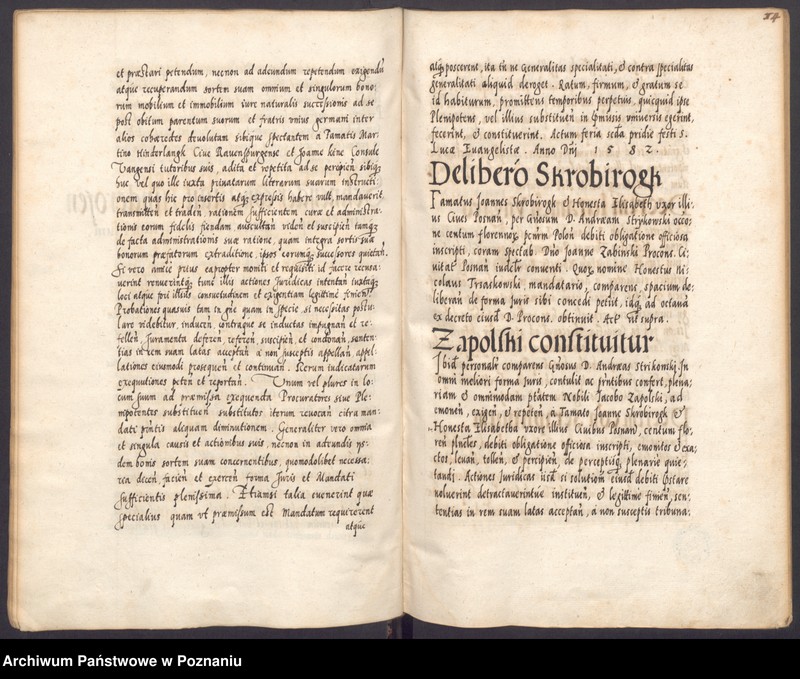 et præstari petendum, necnon ad adeundum repetendum exigendum
atque recuperandum sortem suam omnium et singulorum bono-
rum mobilium et immobilium iure naturalis successionis ad se
post obitum parentum suorum et fratris unius germani inter
alios cohæredes devolutam sibique spectantem a Famatis Mar-
tino Hinderlangk Cive Ravenspurgense et Joanne Consule
Vangensi tutoribus suis, adita et repetita ad se percipien sibiq
ne vel quo ille iuxta primatarum literarum suarum instructi
onem quas hic pro insertis atq expressis habere vult, mandaverit
transmitten et traden rationem sufficientem curæ et administra-
tionis eorum fidelis fiendam auscultan viden et suscipien tamq
de facta administrationis suæ ratione, quam integra sortis suæ
bonorum præfatorum extraditione, ipsos eorumq successores quietan.
Si vero amice prius eapropter moniti et requisiti id facere recusa-
verint renuerintq tunc illis actiones Juridicas intentan iuxtaq
loci atque fori illius consuetudinem et exigentiam legittime finien.
Probationes quasvis tam in gñe quam in specie si necessitas postu-
lare videbitur, inducen contraque se inductas impugnan et re-
fellen. Juramenta deferen referen, suscipien et condonan, senten-
tias in rem suam latas acceptan a non susceptis appellan, appel-
lationes eiusmodi prosequen et continuan. Rerum iudicatarum
exequutiones peten et reportan. Unum vel plures in lo-
cum suum ad præmissa exequenda Procuratores sive Ple-
nipotentes substituen substitutos iterum revocan citra man-
dati pñtis aliquam diminutionem. Generaliter vero omnia
et singula causis et actionibus suis, necnon in adeundis ijs-
dem bonis sortem suam concernentibus, quomodolibet necessa-
rea decen facien et exercen forma Juris et Mandati
sufficientis plenissima. Etiamsi talia evenerint quæ
specialius quam ut præmissum est Mandatum requirerent
atque
24
atq poscerent, ita tñ ne Generalitas specialitati, & contra specialitas
generalitati aliquid deroget. Ratum, firmum, & gratum se
id habiturum, promittens temporibus perpetuis, quicquid ipse
Plenipotens, vel illius substituten in præmissis universis egerint,
fecerint, & constituerint. Actum feria secda pridie festi S.
Lucæ Euangelistæ. Anno Dñi 1582.
Deliberō Skrobirogk
Famatus Joannes Skrobirogk & Honesta Elisabeth uxor illi-
us Cives Posnan, per Gñosum D. Andræam Strykowski occō-
ne centum florennor penirm Polon debiti obligatione officiosa
inscripti, coram spectab. Dño Joanne Zabinski Procons. Ci-
vitat Posnan iudeln conventi. Quor nomine Honestus Ni-
colaus Trsaskowski mandatario, comparens, spacium de-
liberan de forma Juris sibi concedi petiit, idq ad octavam
ex decreto eiusd D. Procons. obtinuit. Act ut supra.
Zapolski constituitur
Ibid personalr comparens Gñosus D. Andræas Strikowski, In
omni meliori forma Juris, contulit ac pñtibus confert, plena-
riam & omnimodam ptatem Nobili Jacobo Zapolski, ad
emonen, exigen, & repeten, a Famato Joanne Skrobirogk &
Honesta Elisabetha uxore illius Civibus Posnan, centum flo-
ren pluñes, debiti obligatione officiosa inscripti, emonitos & exa-
ctos, levan, tollen, & percipien, de perceptisq plenarie quie-
tandi. Actiones Juridicas si solutionem eiusd debiti præstare
noluerint detractaverintve instituen, & legittime finien, sen-
tentias in rem suam latas acceptan, a non susceptis tribuna-
Archiwum Państwowe w Poznaniu